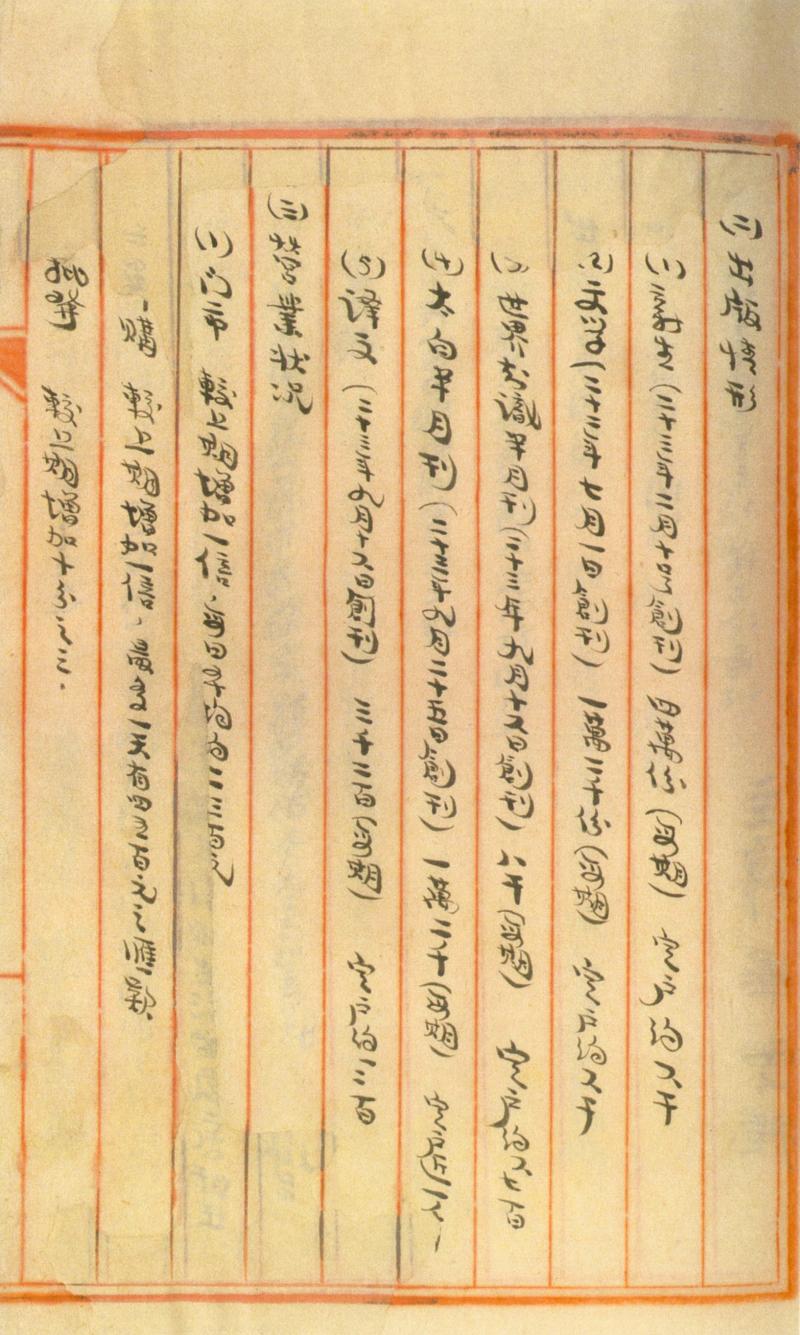 (二)出版情形
(1)新生(二十三年二月十号創刊) 四萬份(每期) 定户约六千
(2)文学(二十二年七月一日創刊) 一萬二千份(每期) 定户约六千
(3)世界知識半月刊(二十三年九月十六日創刊) 八千(每期) 定户约六七百
(4)太白半月刊(二十三年九月二十五日創刊) 一萬二千(每期) 定户近
(5)译文(二十三年九月十六日創刊) 三千二百(每期) 定户约三百
(三)营業状况
(1)门市 較上期增加一倍，每日平均为二三百元
購 較上期增加一倍，最多一天有四五百元之匯款
批發 較上期增加十分之三.